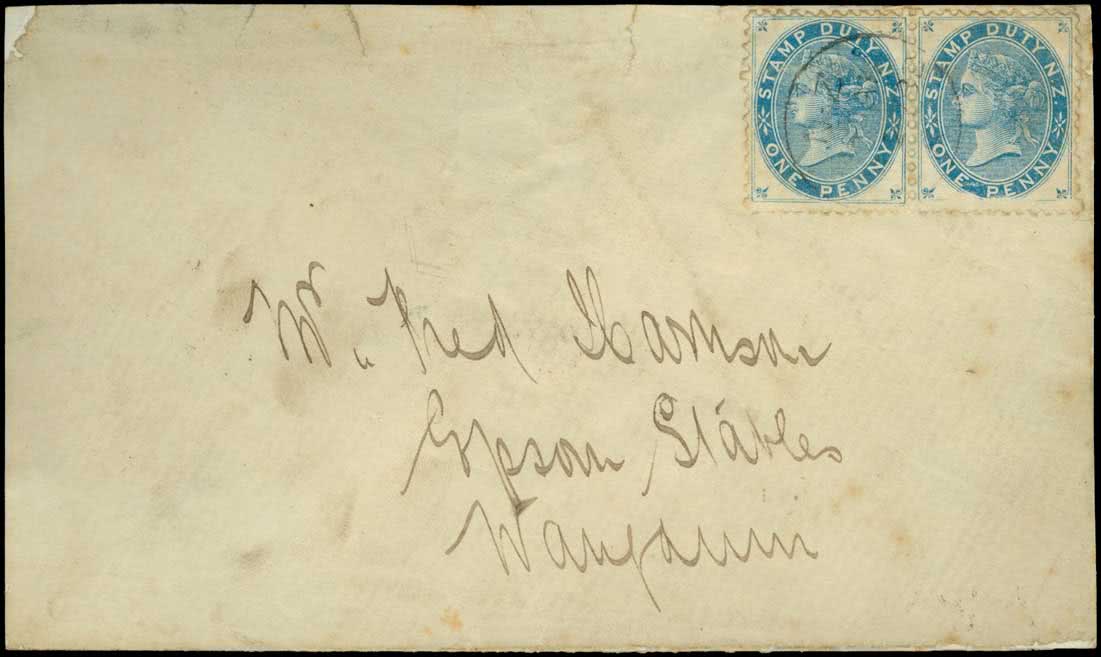 STAMP DUTY N.Z.
ONE PENNY
STAMP DUTY N.Z.
ONE PENNY
Mr. Fred Hamson
Epsom Stables
Wanganui